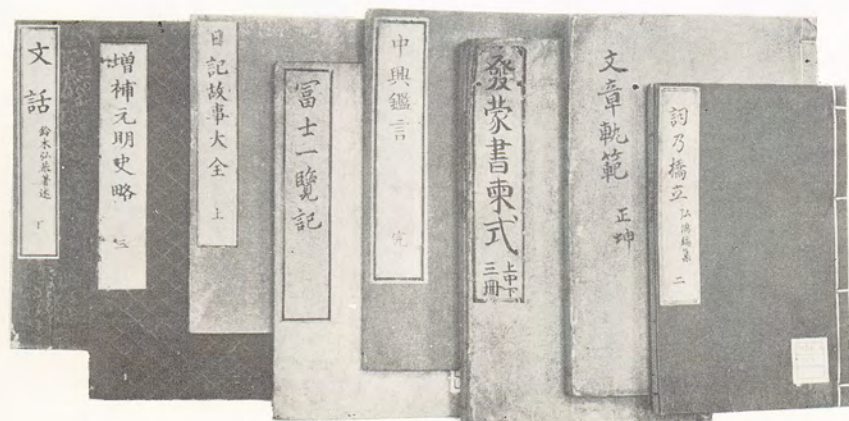 文話
鈴木弘恭著述
下
増補元明史略
三
日記故事大全
上
冨士一覽記
中興鑑言
完
發蒙書柬式
上中下
三冊
文章軌範
正坤
詞乃橋立
弘鴻編集
二